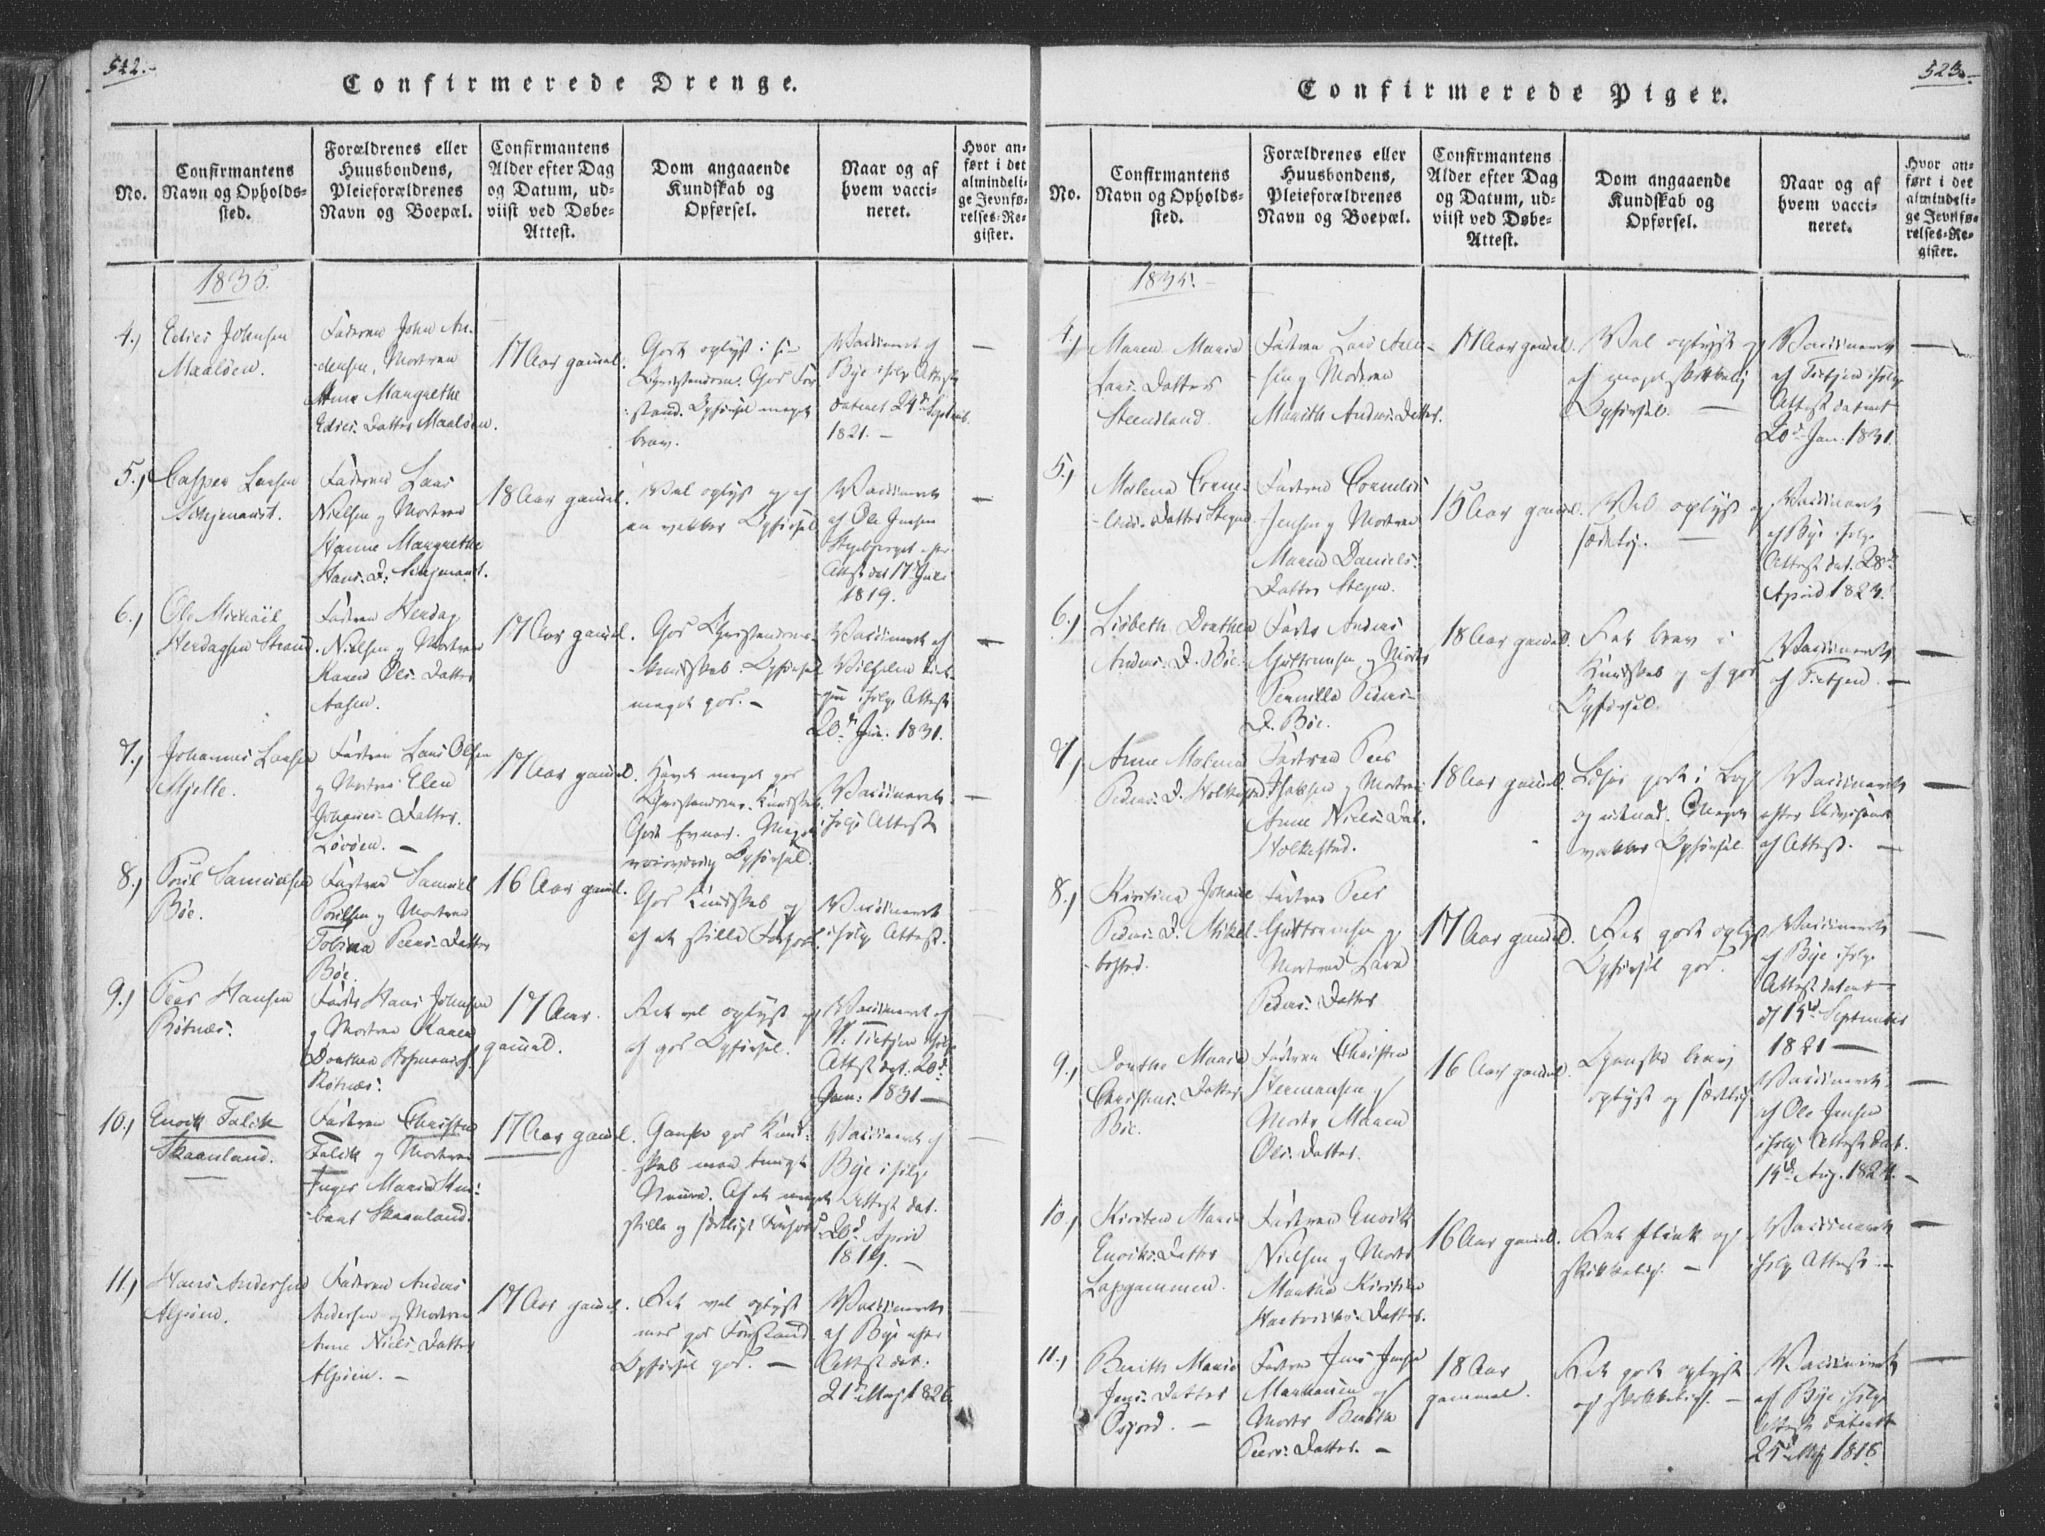 522.
Confirmerede Drenge.
No.
Confirmantens
Navn og Opholds-
sted.
Forældrenes eller
Huusbondens,
Pleieforældrenes
Navn og Boepæl.
Confirmantens
Alder efter Dag
og Datum, ud-
viist ved Døbe-
Attest.
Dom angaaende
Kundskab og
Opførsel.
Naar og af
hvem vacci-
neret.
Hvor an-
ført i det
almindeli-
ge Jevnfø-
relses-Re-
gister.
1835.
4.)
Edies Johnsen
Maalöen.
Faderen John An-
densen, Modren
Anne Margrethe
Edies: Datter Maalöen.
17 Aar gammel.
Godt oplyst i si-
Christendom. God For-
stand. Opførsel meget
brav.
Vaccineret af
Bye ifølge Attest
dateret 24d Septemb.
1821. —
—
5.)
Casper Larsen
Faderen Lars
Nielsen og Modren
Hanne Margrethe
Hans: D:
18 Aar gammel.
Vel oplyst og af
en vakker Opførsel
Vaccineret
af Ole Jensen
Attest det 17d Juni
1819.
—
6.)
Ole Michael
Herdagsen Strand.
Fadren Herdag
Nielsen og Modren
Karen Ols: Datter
Aasen.
17 Aar gammel.
God Christendoms-
kundskab. Opførsel
meget god. —
Vaccineret af
Wilhelm
ifølge Attest
20d Jan. 1831.
—
7.)
Johannes Larsen
Mjelle.
Fadren Lars Olsen
og Modren Elen
Johannes: Datter.
Lövöen. —
17 Aar gammel.
Havde meget god
Christendoms-Kundskab.
Gode Evner. Meget
Opførsel.
Vaccineret
ifølge Attest
—
8.)
Poul Samuelsen
Böe.
Fadren Samuel
Poulsen og Modren
Tobina Peers: Datter
Böe.
16 Aar gammel.
God Kundskab og
af et stille Forhold.
Vaccineret
ifølge Attest.
—
9.)
Peer Hansen
Rötnæs.
Fader Hans Johnsen
og Modren Karen
Dorthea
Rötnæs:
17 Aar
gammel.
Ret vel oplyst og
af god Opførsel.
Vaccineret af
H. Tietjen ifølge
Attest dat. 20d
Jan: 1831 —
—
10.)
Enoch Falch
Skaanland.
Fadren Christen
Falch og Modren
Inger Maria
Skaanland.
17 Aar gammel.
Ganske god Kund-
skab men svagt
Nemme. Af et meget
stille og sædeligt Forhold
Vaccineret af
Bye ifølge
Attest dat.
20d April
1819. —
—
11.)
Hans Andersen
Alpöen.
Faderen Anders
Andersen og Modren
Anne Niels: Datter
Alpöen. —
17 Aar gammel.
Ret vel oplyst
med god Forstand.
Opførsel god. —
Vaccineret
af Bye efter
Attest dat:
21d May 1826
—
523.
Confirmerede Piger.
No.
Confirmantens
Navn og Opholds-
sted.
Forældrenes eller
Huusbondens,
Pleieforældrenes
Navn og Boepæl.
Confirmantens
Alder efter Dag
og Datum, ud-
viist ved Døbe-
Attest.
Dom angaaende
Kundskab og
Opførsel.
Naar og af
hvem vacci-
neret.
Hvor an-
ført i det
almindeli-
ge Jevnfø-
relses-Re-
gister.
1835.
4.)
Maren Maria
Lars: Datter
Steensland.
Fadren Lars Ander-
sen og Modren
Marith Anders: Datter.
17 Aar gammel.
Vel oplyst og
af meget skikkelig
Opførsel. —
Vaccineret
af Tietjen ifølge
Attest dateret
20d Jan. 1831.
—
5.)
Malena Corne-
lius: Datter Stegen
Fadren Cornelius
Jensen og Modren
Maren Daniels:
Datter Stegen.
15 Aar gammel.
Vel oplyst og
sædelig. —
Vaccineret
af Bye ifølge
Attest dat. 28d
April 1823.
—
6.)
Lisbeth Dorthea
Anders: D. Böe.
Fader Anders
Guttormsen og Moder
Pernilla Peders-
D. Böe.
18 Aar gammel.
Ret brav i
Kundskab og af god
Opførsel.
Vaccineret
af Tietjen. —
—
7.)
Anne Malena
Peders: D. Holkestad.
Fadren Peer
og Modren
Anne Niels: Dat.
Holkestad.
18 Aar gammel.
Læser godt i Bog
og udenad. Meget
vakker Opførsel.
Vaccineret
efter
af Attest. —
—
8.)
Kirstina Johanne
Peders: D. Mikel-
bosted.
Fadren Peer
Guttormsen og
Modren Lava
Peders: Datter
17 Aar gammel.
Ret godt oplyst
Opførsel god.
Vaccineret
af Bye ifølge
Attest dateret
d/ 15d September
1821 —
—
9.)
Dorthe Maria
Christens: Datter
Böe.
Fadren Christen
Hermansen og
Moder Maren
Ols: Datter.
16 Aar gammel.
Ganske brav
oplyst og sædelig
Vaccineret
af Ole Jensen
ifølge Attest dat.
14d Aug. 1824. —
—
10.)
Kirsten Maria
Enochs: Datter
Lapgammen.
Fadren Enoch
Nielsen og Moder
Martha Kirstina
Hartvichs: Datter.
16 Aar gammel.
Ret flink og
skikkelig. —
Vaccineret
ifølge Attest. —
—
11.)
Berith Maria
Jens: Datter
—
Fadren Jens Jensen
og
Moder Berith
Peers: Datter. —
18 Aar
gammel.
Ret godt oplyst
og skikkelig. —
Vaccineret
af Bye ifølge
Attest dateret
25d May 1818.
—